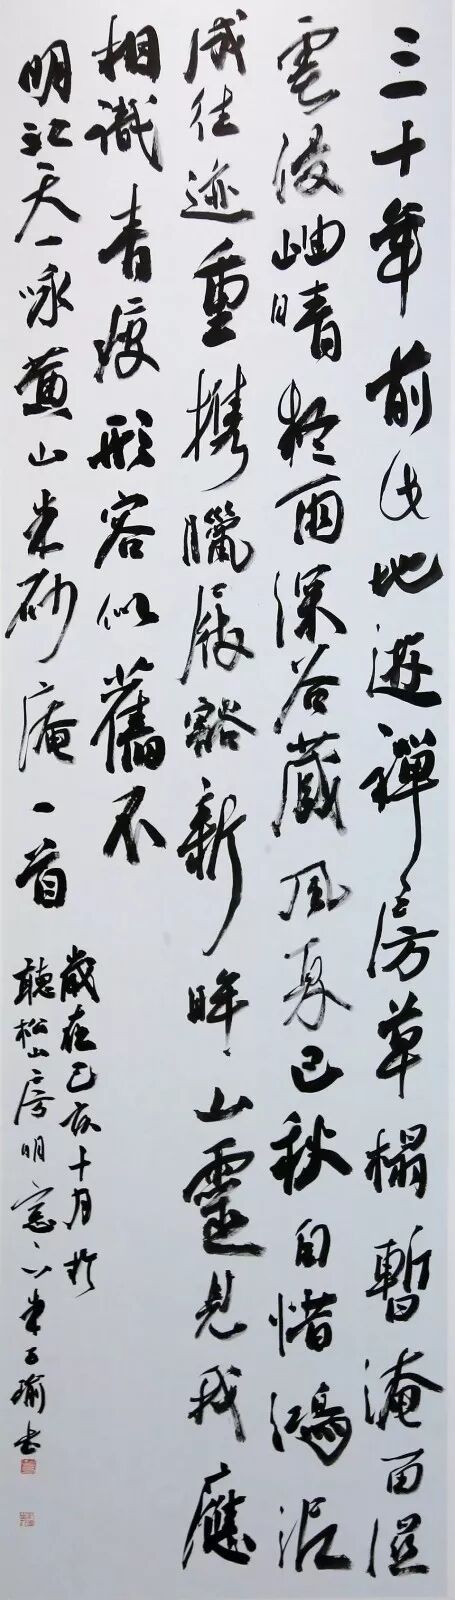 三十年前此地遊禪房草榻暫淹留濕
雲沒岫晴猶雨深谷藏風夏已秋自惜鴻泥
成往迹重携臘屐豁新眸山靈見我應
相識青瘦形容似舊不
明天一咏黃山朱砂庵一首
歲在己亥十月於
聽松山房明窗下朱瑜書